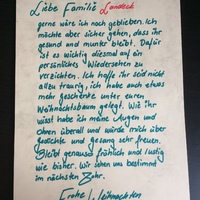 Liebe Familie Landeck
gerne wäre ich noch geblieben. Ich
möchte aber sicher gehen, dass ihr
gesund und munter bleibt. Dafür
ist es wichtig diesmal auf ein
persönliches Wiedersehen zu
verzichten. Ich hoffe ihr seid nicht
allzu traurig, ich habe auch etwas
mehr Geschenke unter euren
Weihnachtsbaum gelegt. Wie ihr
wisst habe ich meine Augen und
Ohren überall und würde mich über
Gedichte und Gesang sehr freuen.
Bleibt genauso fröhlich und lustig
wie bisher. Wir sehen uns bestimmt
im nächsten Jahr.
Frohe Weihnachten